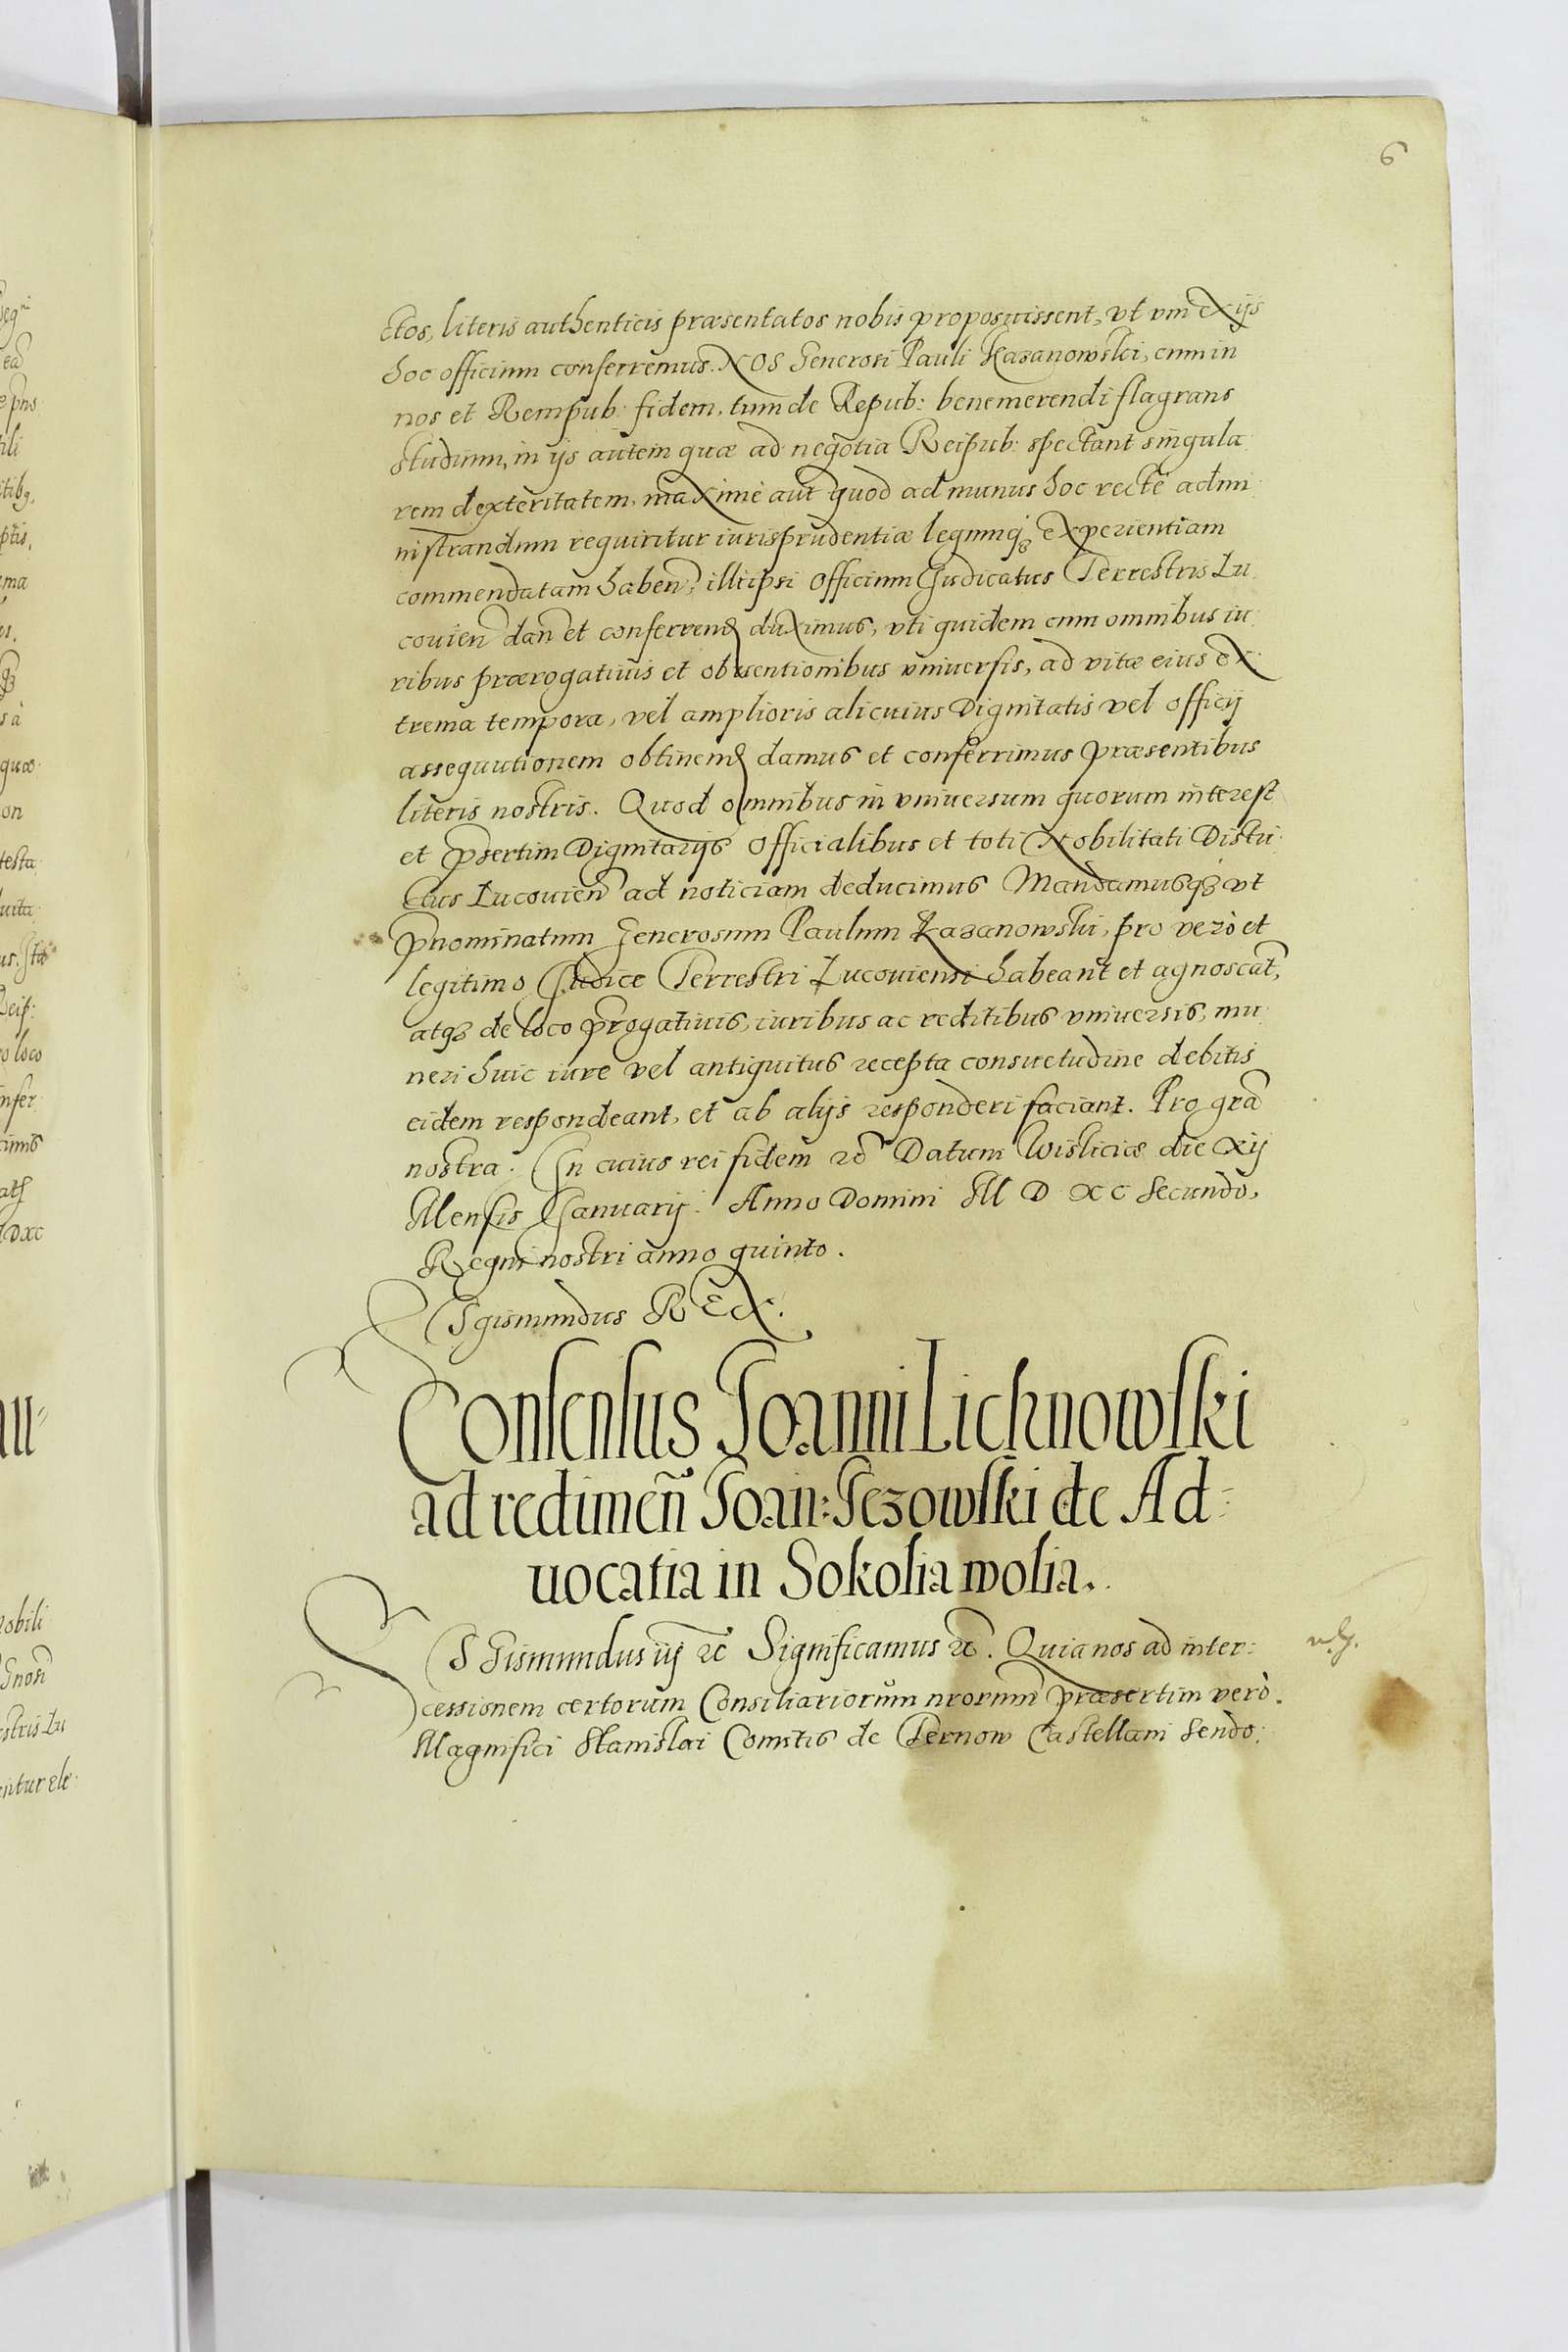 6
ctos, literis authenticis præsentatos nobis proposuissent, vt vni ex ijs
hoc officium conferremus. NOS Generosi Pauli Kazanowski, cum in
nos et Rempub: fidem, tum de Repub: benemerendi flagrans
studium, in ijs autem quæ ad negotia Reipub: spectant singula
rem dexteritatem, maxime aut quod ad munus hoc recte admi
nistrandum requiritur iurisprudentiæ legumq3 experientiam
commendatam haben, illi ipsi officium Iudicatus Terrestris Lu
couien dan et conferrend duximus, vti quidem cum omnibus iu
ribus prærogatiuis et obuentionibus vniuersis, ad vitæ eius ex
trema tempora, vel amplioris alicuius Dignitatis vel officij
assequutionem obtinend damus et conferrimus præsentibus
literis nostris. Quod omnibus in vniuersum quorum interest
et p̄sertim Dignitarijs officialibus et toti Nobilitati Distri
ctus Lucouien ad noticiam deducimus Mandamusq3 vt
p̄nominatum Generosum Paulum Kazanowski, pro verò et
legitimo Iudice Terrestri Lucouiensi habeant et agnoscāt,
atq3 de loco p̄rogatiuis, iuribus ac reditibus vniuersis, mu
neri huic iure vel antiquitus recepta consuetudine debitis
eidem respondeant, et ab alijs responderi faciant. Pro grā
nostra. In cuius rei fidem &c Datum Wisliciæ die xij
Mensis Ianuarij. Anno Domini M D XC secundo,
Regni nostri anno quinto.
Sigismundus REX.
Consensus Joanni Lichnowski
ad redimen̄ Joan: Jezowski de Ad=
uocatia in Sokolia wolia.
SIGismundus iij &c Significamus &c. Quia nos ad inter=
cessionem certorum Consiliariorum nrorum præsertim verò
Magnifici Stanislai Comitis de Ternow Castellani Sendo: